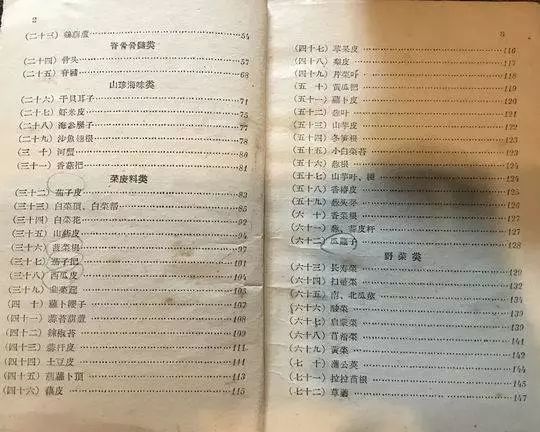 2
(二十三) 葫蘆………54
脊骨骨髓类
(二十四) 骨头………57
(二十五) 脊髓………68
山珍海味类
(二十六) 干貝耳子………71
(二十七) 虾米皮………75
(二十八) 海参腸子………77
(二十九) 沙魚翅根………78
(三 十) 河蟹………80
(三十一) 香菇把………81
菜废料类
(三十二) 茄子皮………83
(三十三) 白菜頂、白菜部………85
(三十四) 白菜花………92
(三十五) 山………94
(三十六) 菠菜根………97
(三十七) 茄子把………101
(三十八) 西瓜皮………104
(三十九) 韭菜………105
(四 十) 蘿卜纓子………107
(四十一) 蒜苔葫蘆………108
(四十二) 辣椒………109
(四十三) 皮………111
(四十四) 土豆皮………111
(四十五) 葫蘿卜頂………113
(四十六) 藕皮………115
3
(四十七) 苹果皮………116
(四十八) 梨皮………116
(四十九) 芹菜叶………118
(五 十) 黄瓜把………119
(五十一) 蘿卜皮………120
(五十二) 葱叶………121
(五十三) 山芋皮………122
(五十四) 冬笋根………123
(五十五) 小白菜………123
(五十六) 葱根………124
(五十七) 山芋叶、梗………124
(五十八) 香椿皮………125
(五十九) 芽………126
(六 十) 香菜根………127
(六十一) 葱、皮杆………127
(六十二) 瓜瓤子………128
野菜类
(六十三) 長寿菜………129
(六十四) 扫帚菜………132
(六十五) 南、北瓜葉………134
(六十六) 酸菜………137
(六十七) 启蒙菜………139
(六十八) 苜蓿菜………141
(六十九) 黄菜………142
(七 十) 蒲公英………144
(七十一) 拉拉苗根………145
(七十二) 草蘑………147